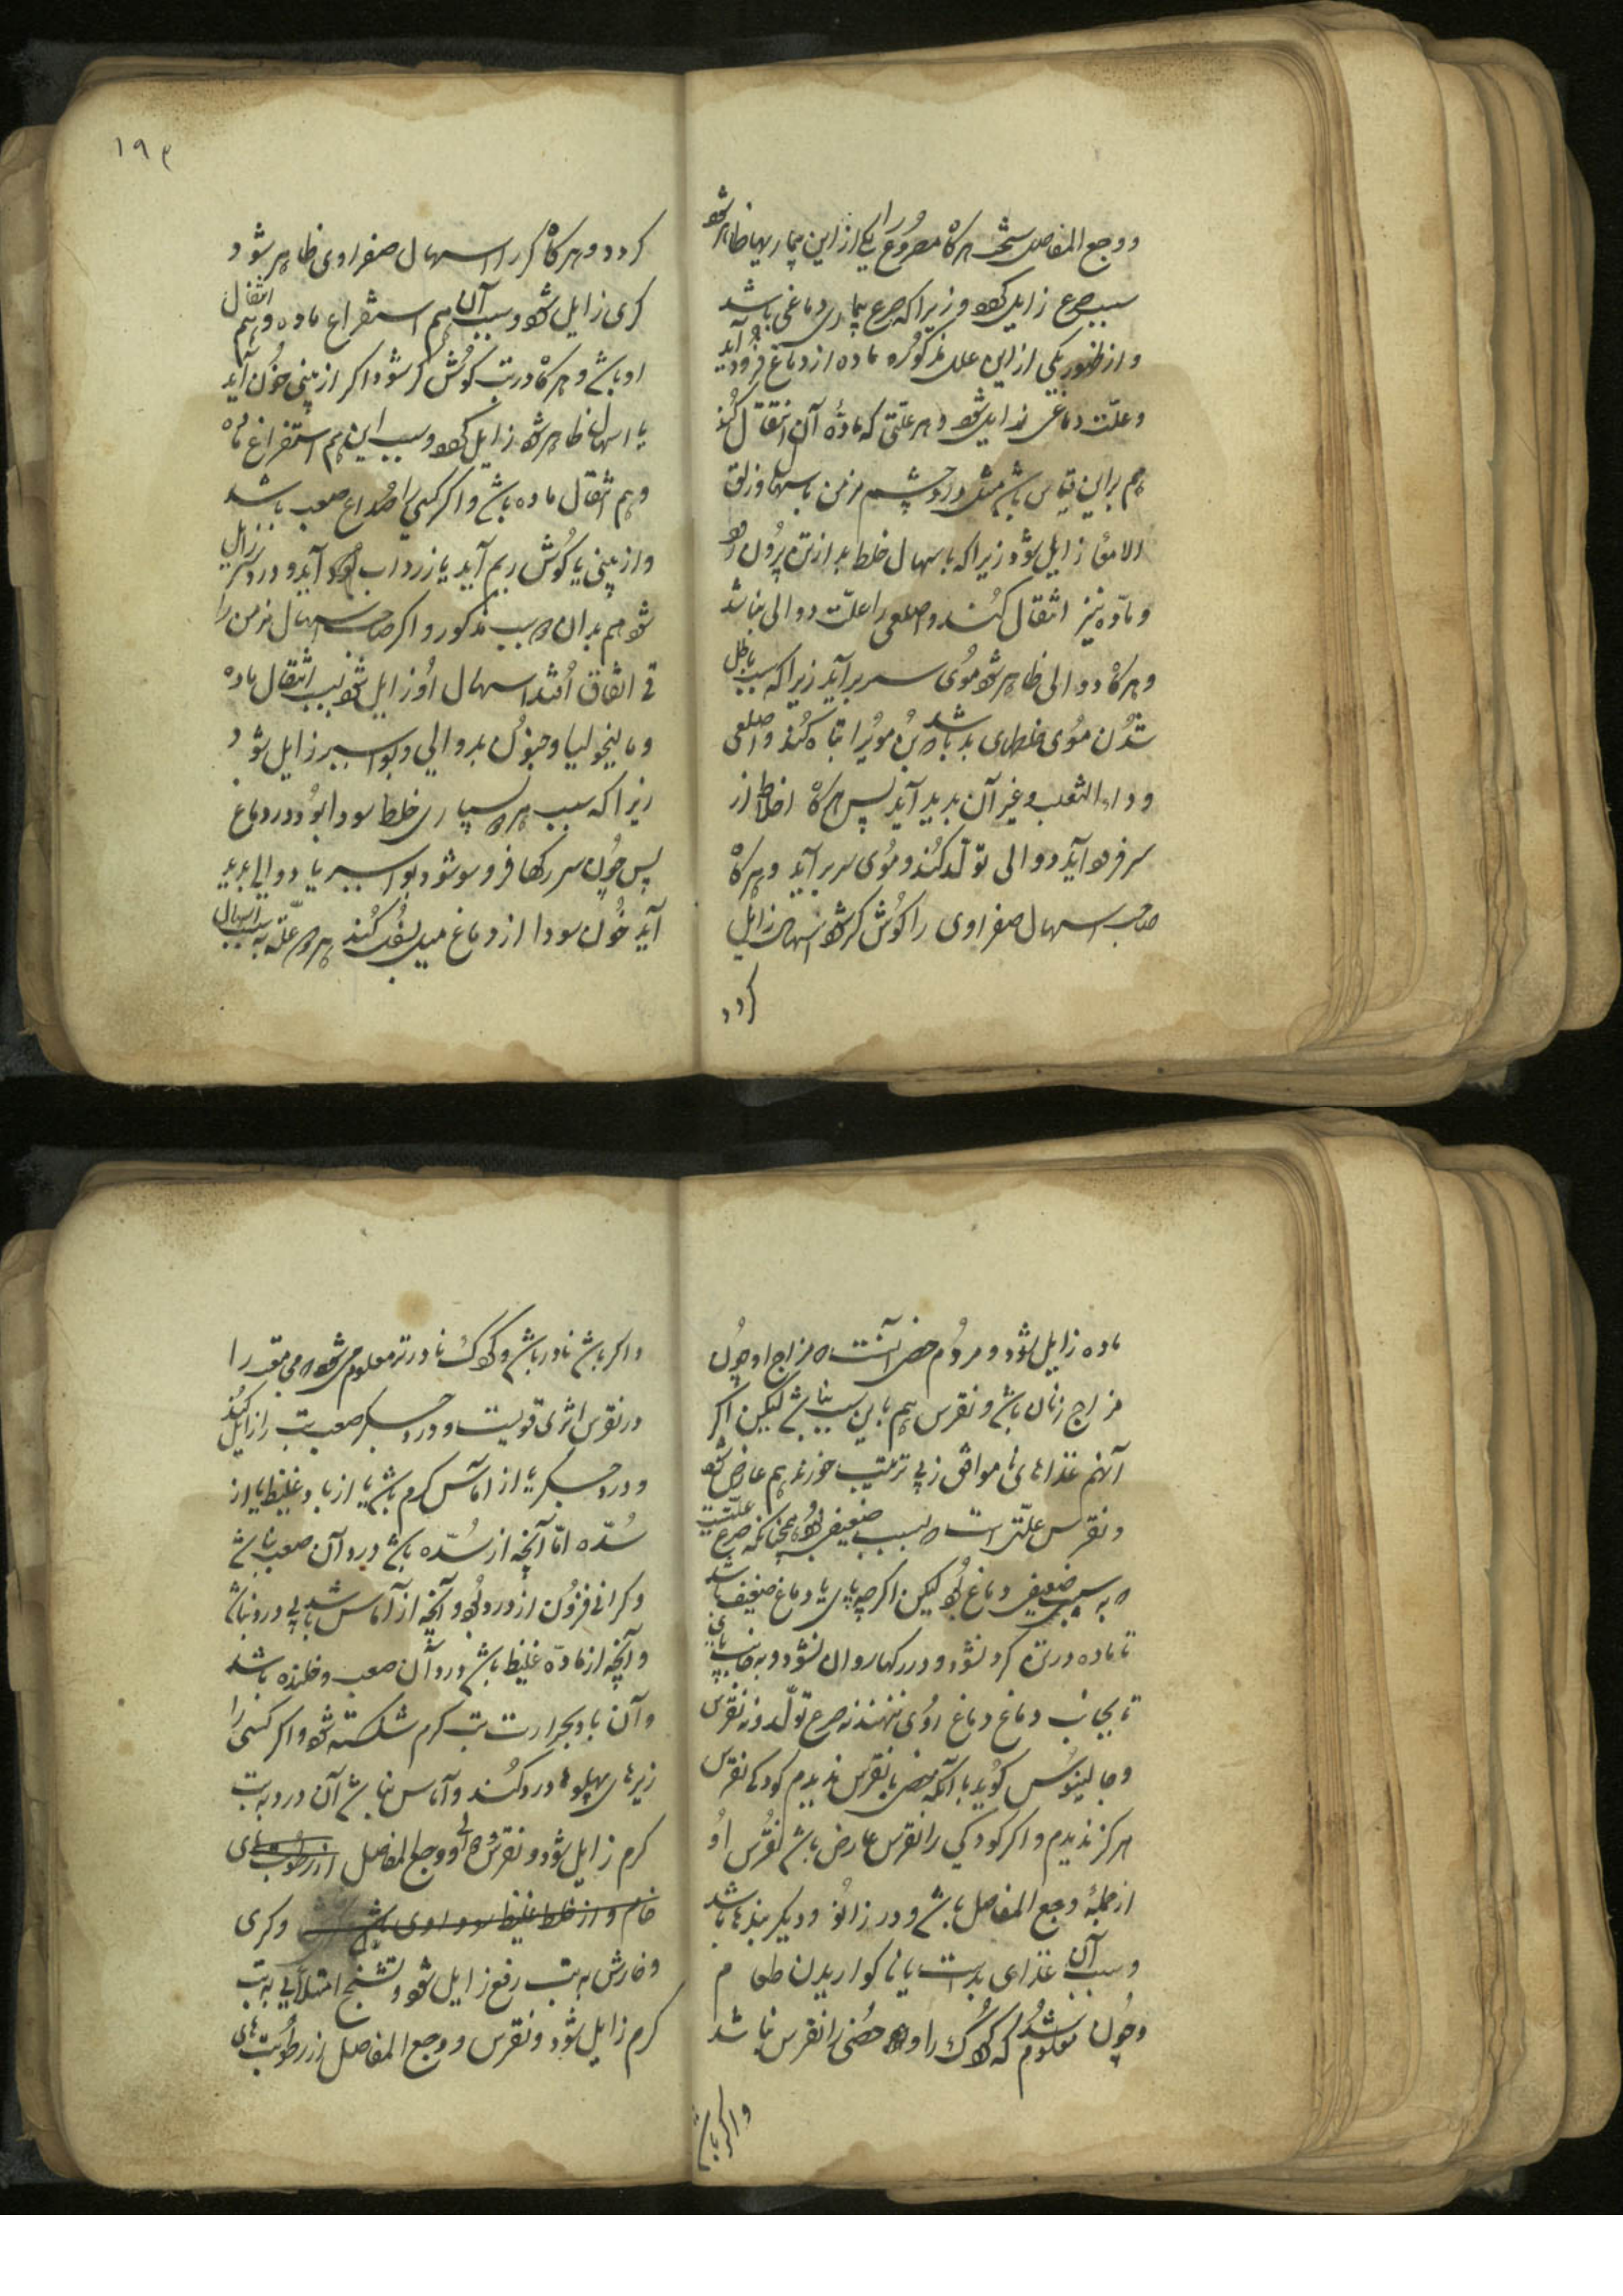 ووجع المفاصل سخت هرکاه مصروع را یکی از این بیماریها ظاهر شود
سبب صرع زایل کردد زیرا که صرع بیماری دماغی باشد
و از ظهور یکی از این علل مذکوره ماده از دماغ فرود آید
و علّت دماغی زایل شود و هر علّتی که مادّه آن انتقال کند
هم براین قیاس باشد مثل درد چشم مزمن باسهال و زلق
الامعا زایل شود زیرا که باسهال خلط بد از تن بیرون رود
و مادّه نیز انتقال کند و اصلعی را علّت دوالی نباشد
و هرکاه دوالی ظاهر شود موی سر برآید زیرا که سبب باطل
شدن موی خلطهای بد باشد که بُن مویرا تباه کند و اصلعی
و داء الثعلب و غیر آن بدید آید پس هرکاه اخلاط از
سر فرود آید دوالی تولّد کند و موی سر برآید و هرکاه
صاحب اسهال صفراوی را کوش کر شود اسهال زایل
کردد
۱۹۴
کردد و هرکاه کر را اسهال صفراوی ظاهر شود
کری زایل شود و سبب آن هم استفراغ ماده و هم انتقال
او باشد و هرکاه در تب کوش کر شود اکر از بینی خون آید
یا اسهال ظاهر شود زایل کردد و سبب این هم استفراغ ماده
و هم انتقال ماده باشد و اکر کسی را صداع صعب باشد
و از بینی یا کوش ریم آید یا زرداب آید درد سر زایل
شود هم بدان سبب مذکور و اکر صاحب اسهال مزمن را
قی اتفاق افتد اسهال او زایل شود بسبب انتقال ماده
و مالیخولیا و جنون بدوالی و بواسیر زایل شود
زیرا که سبب هر دو بیماری خلط سودا بود در دماغ
پس چون سر رکها فرو سو شود بواسیر یا دوالی بدید
آید خون سودا از دماغ میل بسفل کند هر دو علّت به سبب اسهال
ماده زایل شود و مردم خصی آنست که مزاج او چون
مزاج زنان باشد و نقرس هم باین سبب نباشد لیکن اکر
آنهم غذاهای ناموافق و بی ترتیب خورند هم عارض شود
و نقرس علّتی است که بسبب ضعیفی بود همچنانکه صرع علّتیست
که به سبب ضعیفی دماغ بود لیکن اکر چه پای یا دماغ ضعیف باشد
تا ماده در تن کرد نشود و در رکها روان نشود و به جانب پای
تا بجانب دماغ روی ننهند نه صرع تولّد و نه نقرس
و جالینوس کوید با آنکه خصی با نقرس ندیدم کودک نقرس
هرکز ندیدم و اکر کودکی را نقرس عارض باشد نقرس او
از جمله وجع المفاصل باشد و در زانو و دیکر بندها باشد
و سبب آن غذای بد است یا ناکواریدن طعام
و چون معلوم شد که کودک را و خصی را نقرس نباشد
و اکر باشد
و اکر باشد نادر باشد و کودک نادرتر معلوم می شود که می بقدر را
در نقرس اثری قویست و درد جکر صعب تب را زایل کند
و درد جکر یا از آماس کرم باشد یا از باد غلیظ یا از
سُدّه امّا آنچه از سُدّه باشد درد آن صعب نباشد
و کرانی فزون از درد بود و آنچه از آماس باشد بی درد نباشد
و آنچه از مادّه غلیظ باشد درد آن صعب و خلنده باشد
و آن باد بحرارت تب کرم شکسته شود و اکر کسی را
زیرهای پهلوها درد کند و آماس نباشد آن درد به تب
کرم زایل شود و نقرس و وجع المفاصل از رطوبتهای
خام و از خلط غلیظ سوداوی باشد و کری
و خارش به تب ربع زایل شود و تشنج امتلائی به تب
کرم زایل شود و نقرس و وجع المفاصل از رطوبتهای